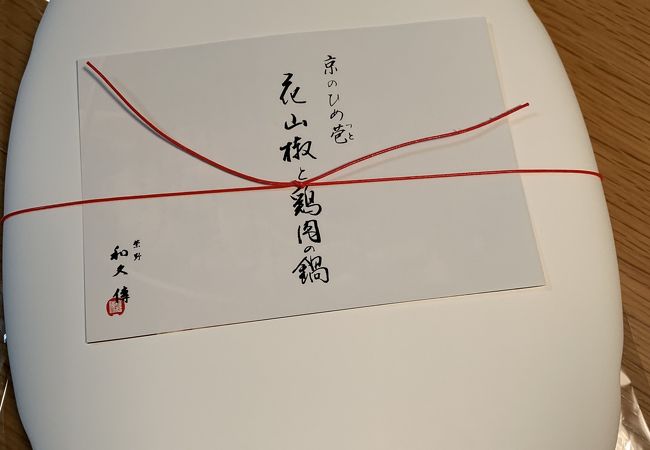 京のひめ苞
っと
花山椒と鶏肉の鍋
紫野
和久傳